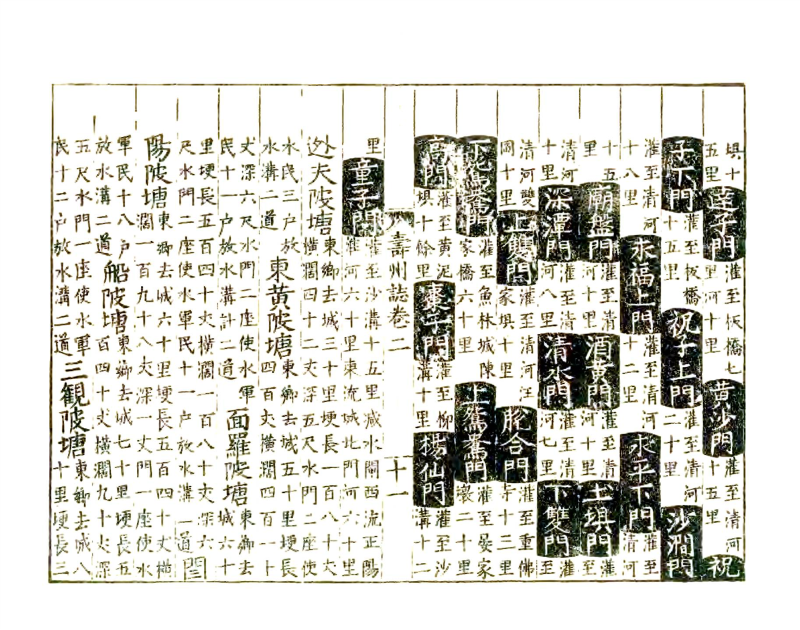 埧十五里莲子門灌至板橋七里河十里黄沙門灌至清河十五里祝
子下門灌至板橋十五里祝子上門灌至清河二十里沙澗門
灌至清河十八里永福上門灌至清河十二里永平下門灌至清河
十五里廟盤門灌至清河十里酒黄門灌至清河十里土埧門灌至
清河十里深潭門灌至清河八里清水門灌至清河七里下雙門灌至
清河雙岡十里上雙門灌至清河汪家埧十里脱合門灌至重佛寺十三里
下鴛鴦門灌至魚林城陳家橋六十里上鴛鴦門灌至晏家壕二十里
高門灌至黄泥埧十餘里棗子門灌至柳溝十里楊仙門灌至沙溝十二
壽州誌卷二 十一
里童子門灌至沙溝十五里減水閘西流正陽淮河六十里東流城北門河六十里
迯天陂塘東鄉去城三十里埂長一百八十丈橫濶四十二丈深五尺水門二座使
水民三户放水溝二道東黄陂塘東鄉去城五十里埂長四百丈橫濶四百一十
丈深六尺水門二座使水軍民十一户放水溝計二道面羅陂塘東鄉去城六十
里埂長五百四十丈橫濶一百八十丈深六尺水門二座使水軍民十一户放水溝一道
陽陂塘東鄉去城六十里埂長五百四十丈橫濶一百九十八丈深一丈門一座使水
軍民十八户放水溝二道船陂塘東鄉去城七十里埂長五百四十丈橫濶九十丈深
五尺水門一座使水軍民十二户放水溝二道三觀陂塘東鄉去城八十里埂長三